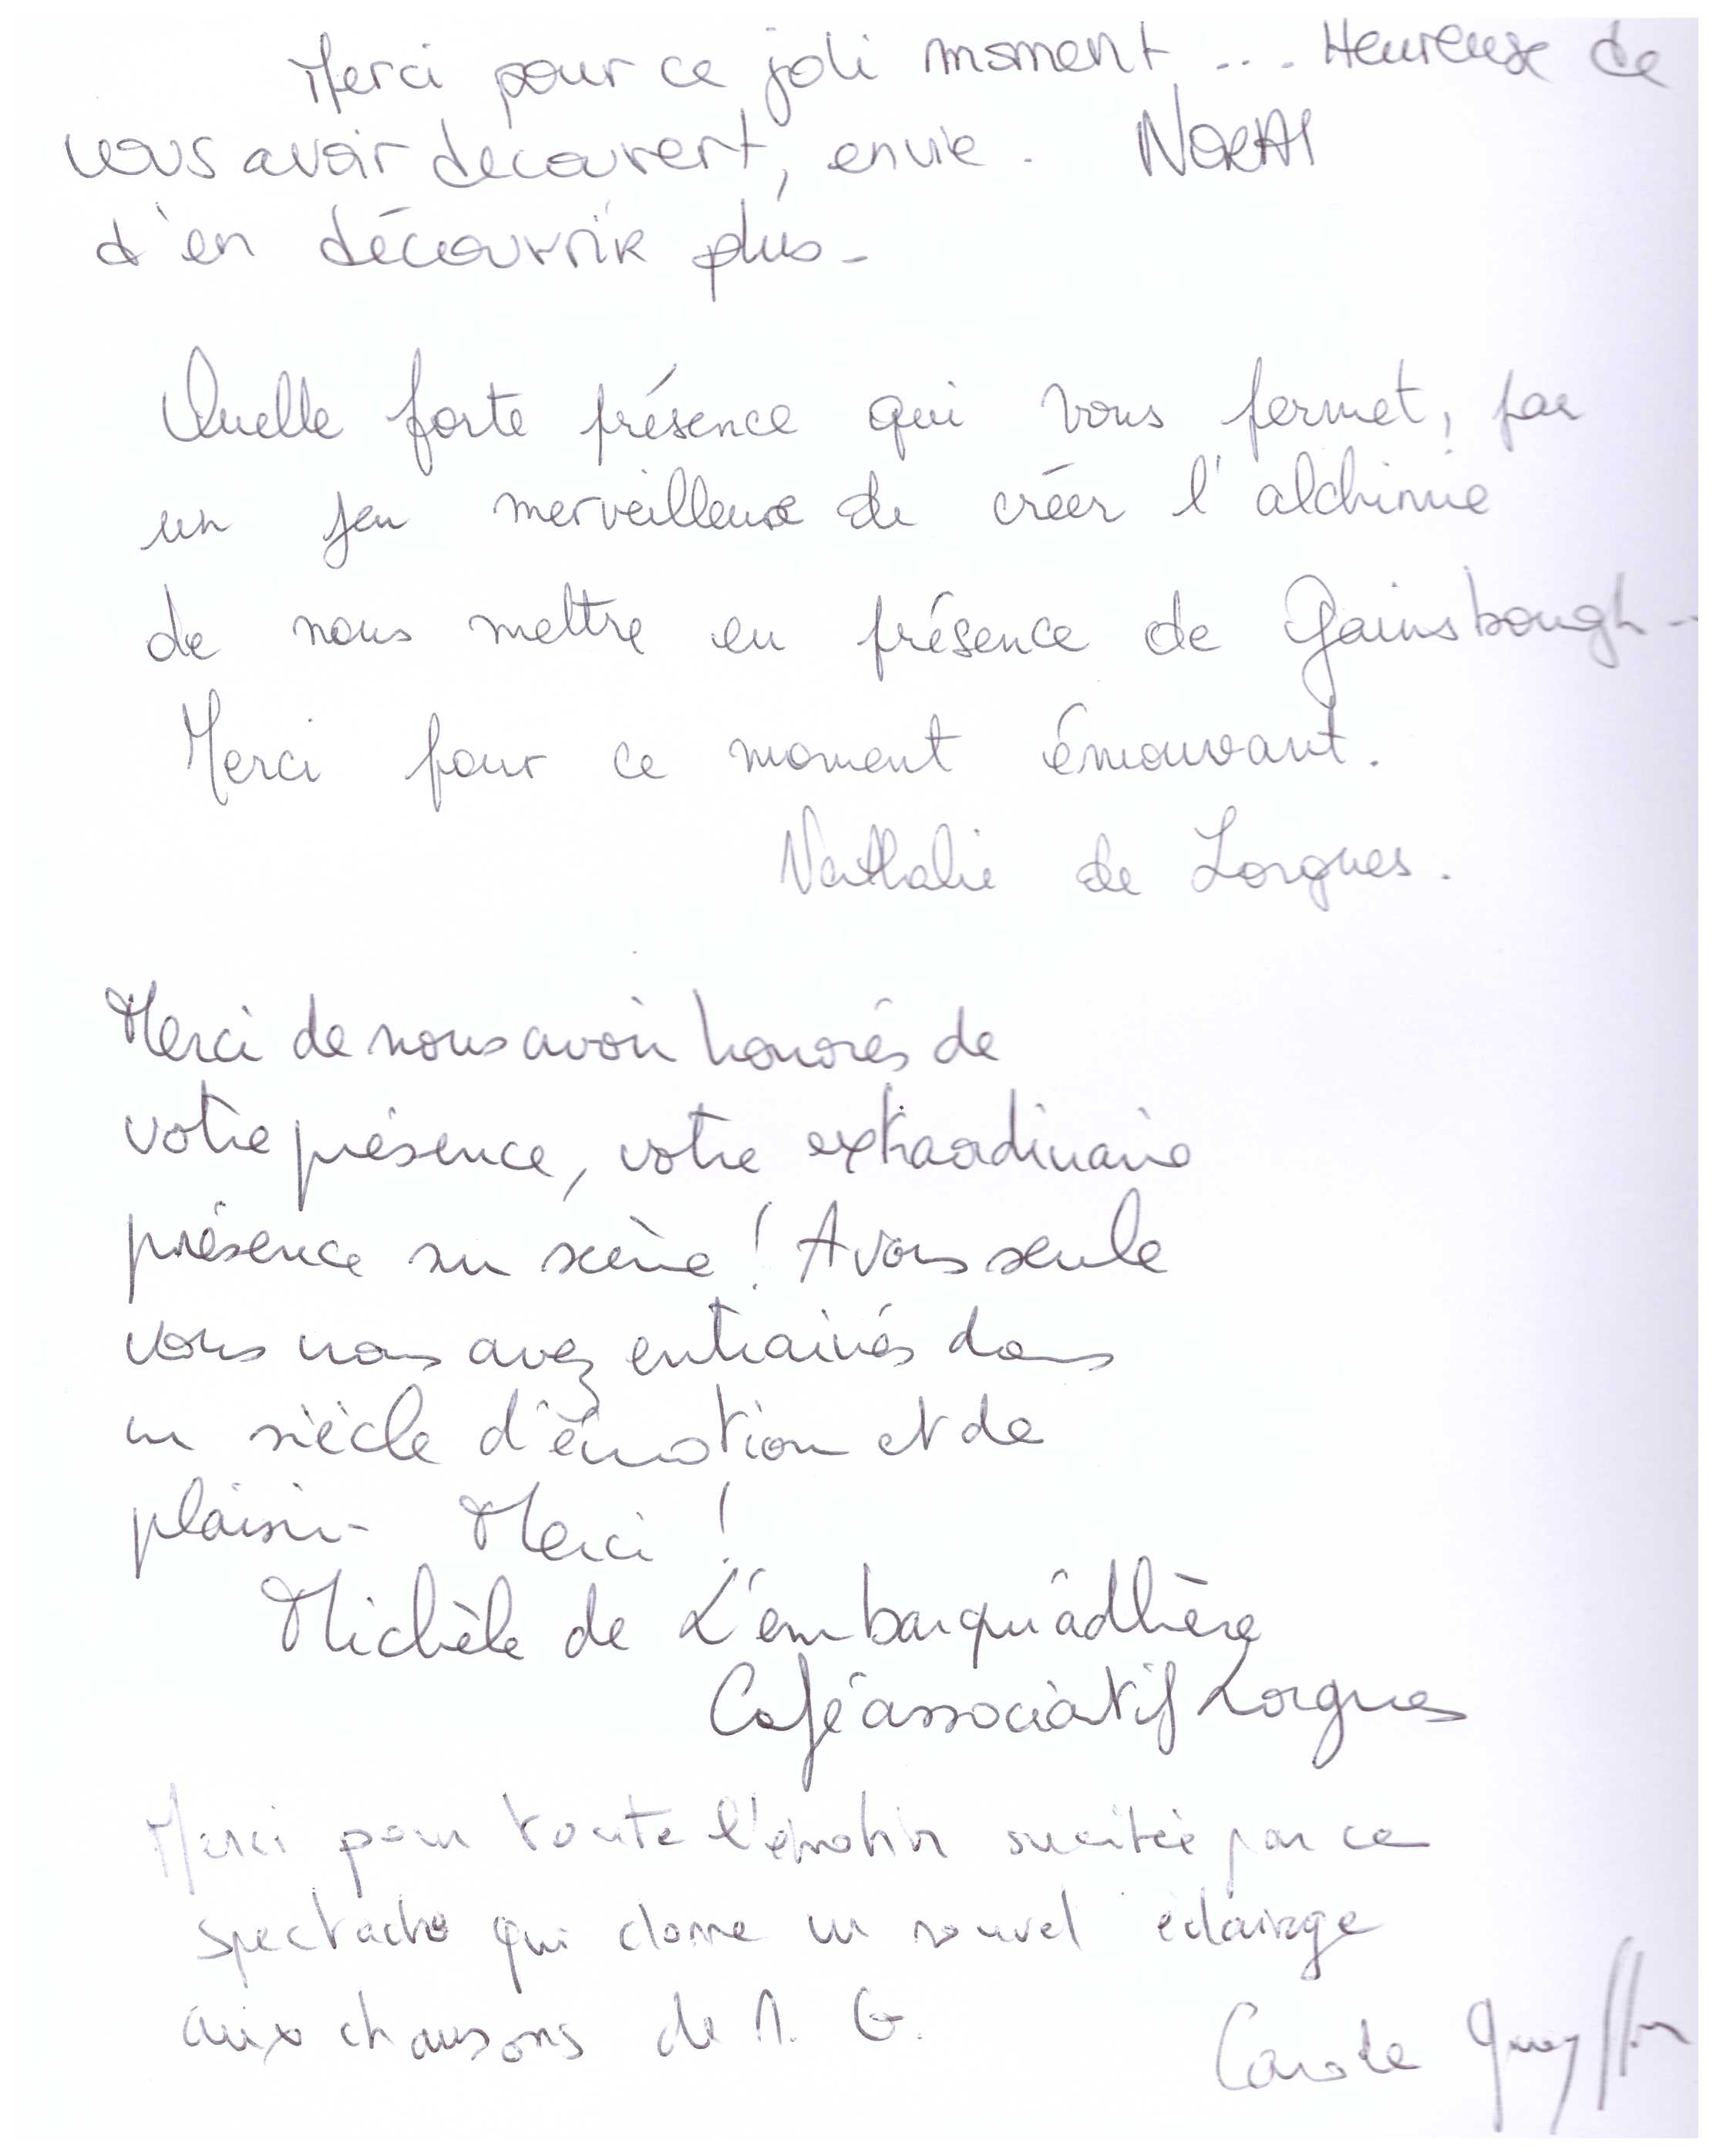 Merci pour ce joli moment ... Heureuse de
vous avoir decouvert, envie. NORAH
d'en découvrir plus -
Quelle forte présence qui vous permet, par
un jeu merveilleux de créer l'alchimie
de nous mettre en présence de Gainsbough -
Merci pour ce moment émouvant.
Nathalie de Lorgues.
Merci de nous avoir honorés de
votre présence, votre extraordinaire
présence sur scène ! A vous seule
vous nous avez entrainés dans
un siècle d'émotion et de
plaisir - Merci !
Michèle de L'embarquâdhère
Café associatif Lorgues
Merci pour toute l'émotion suscitée par ce
spectacle qui donne un nouvel éclairage
aux chansons de G.
Carole